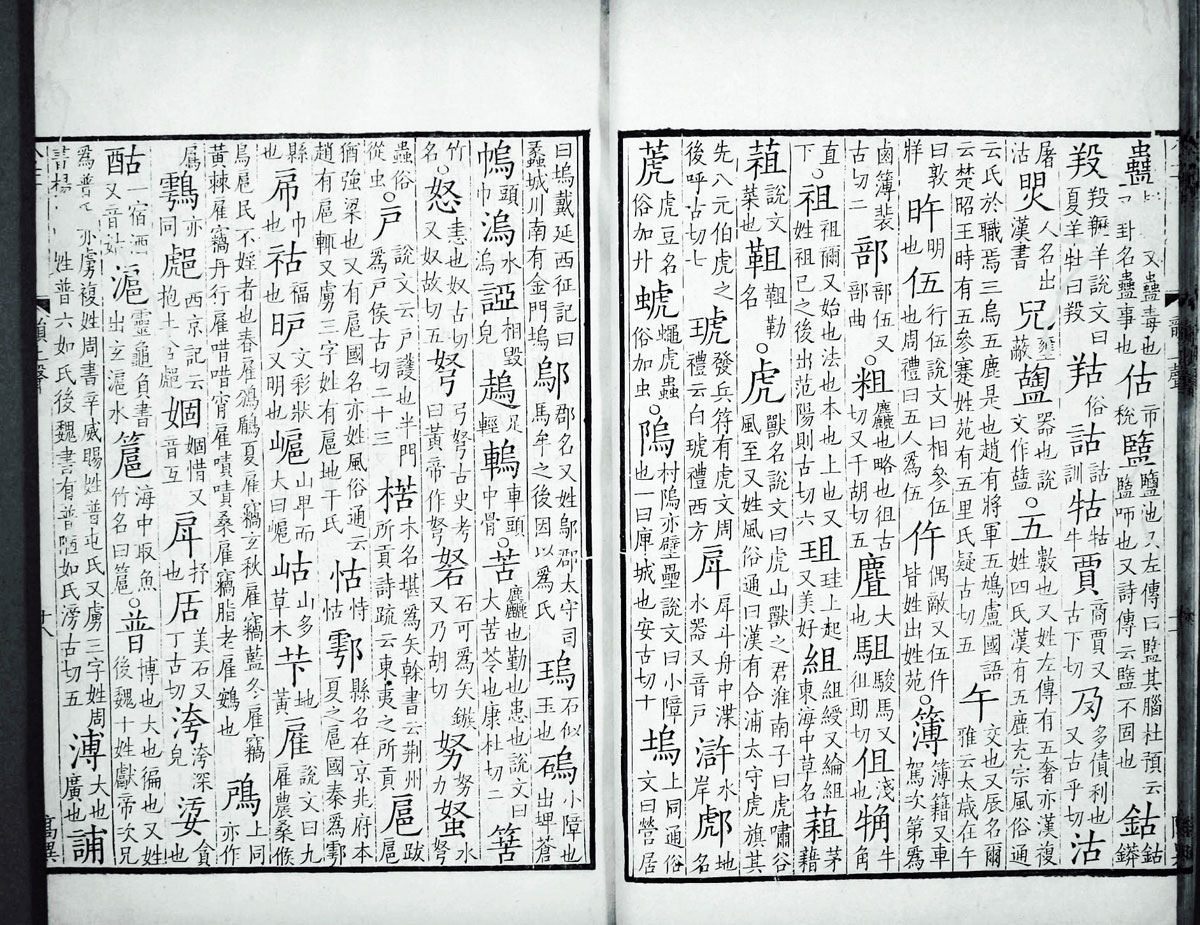 蠱 卦名蠱事也又蠱毒也 估 市稅 盬 盬池又左傳曰盬其腦杜預云盬啑也又詩傳云盬不固也 鈷 鈷鏻
羖 羖䍽羊說文曰夏羊牡曰羖 羖 俗 詁 詁訓 牯 牯牛 賈 商賈又古下切 夃 多債利也又古乎切 沽
屠沽 㷠 人名出漢書 𠑹 壅蔽 器也說文作盬 ○五 數也又姓左傳有五奢亦漢複姓四氏漢有五鹿充宗風俗通
云氏於職焉三烏五鹿是也趙有將軍五鳩盧國語云楚昭王時有五參蹇姓苑有五里氏疑古切五 午 交也又辰名爾雅云太歲在午
曰敦牂 旿 明也 伍 行伍說文曰相參伍也周禮曰五人爲伍 仵 偶敵又伍仵皆姓出姓苑 ○簿 簿籍又車駕次第爲
鹵簿裴古切二 部 部伍又部曲 ○粗 麤也略也徂古切又千胡切五 麆 大也 駔 駿馬又徂朗切 伹 淺也 觕 牛角
直下 ○祖 祖禰又始也法也本也上也又姓祖巳之後出范陽則古切六 珇 珪上起又美好 組 組綬又綸組東海中草名 蒩 茅藉
葅 說文菜也 靻 靻勒 ○虎 獸名說文曰虎山獸之君淮南子曰虎嘯谷風至又姓風俗通曰漢有合浦太守虎旗其
先八元伯虎之後呼古切七 琥 發兵符有虎文周禮云白琥禮西方 戽 戽斗舟中渫水器又音戶 滸 水岸 鄠 地名
萀 虎豆名俗加廾 蝆 蠅虎蟲俗加虫 ○隖 村隖亦壁壘說文曰小障也一曰庳城也安古切十 塢 上同通俗文曰營居
曰塢戴延西征記曰蠡城川南有金門塢 鄔 郡名又姓鄔郡太守司馬牟之後因以爲氏 瑦 石似玉也 碼 小障也出埤蒼
㡧 頭巾 溩 水溩 䛩 相毀皃 䡧 足輕 䡧 車頭中骨 ○苦 麤也勤也患也說文曰大苦苓也康杜切二 筶
竹名 ○怒 恚也奴古切又奴故切五 弩 弓弩古史考曰黃帝作弩 砮 石可爲矢鏃又乃胡切 努 努力 𧓏 水弩
蟲俗從虫 ○戶 說文云戶護也半門爲戶侯古切二十三 楛 木名堪爲矢榦書云荊州所貢詩疏云東夷之所貢 扈 跋扈
猶強梁也又有扈國名亦姓風俗通云趙有扈輒又虜三字姓有扈地干氏 怙 恃怙 鄠 縣名在京兆府本夏之扈國秦爲鄠
縣也 帍 巾也 祜 福也 昈 文彩狀又明也 㠅 山卑而大曰㠅 岵 山多草木 芐 地黃 雇 說文曰九雇農桑候
鳥扈民不婬者也春雇鳻鶞夏雇竊玄秋雇竊藍冬雇竊黃棘雇竊丹行雇唶唶宵雇嘖嘖桑雇竊脂老雇鷃也 鳸 上同亦作
鳸 䨼 亦同 䖚 西京記云䖚抱 婟 婟惜又音互 戽 抒也 㕆 美石又丁古切 洿 洿深皃 婟 貪也
酤 一宿酒又音姑 滬 靈龜負書出玄滬水 簄 海中取魚竹名曰簄 ○普 博也大也徧也又姓後魏十姓獻帝次兄
爲普氏亦虜複姓周書辛威賜姓普屯氏又虜三字姓周書楊 姓普六如氏後魏書有普陋如氏滂古切五 溥 大也廣也 誧